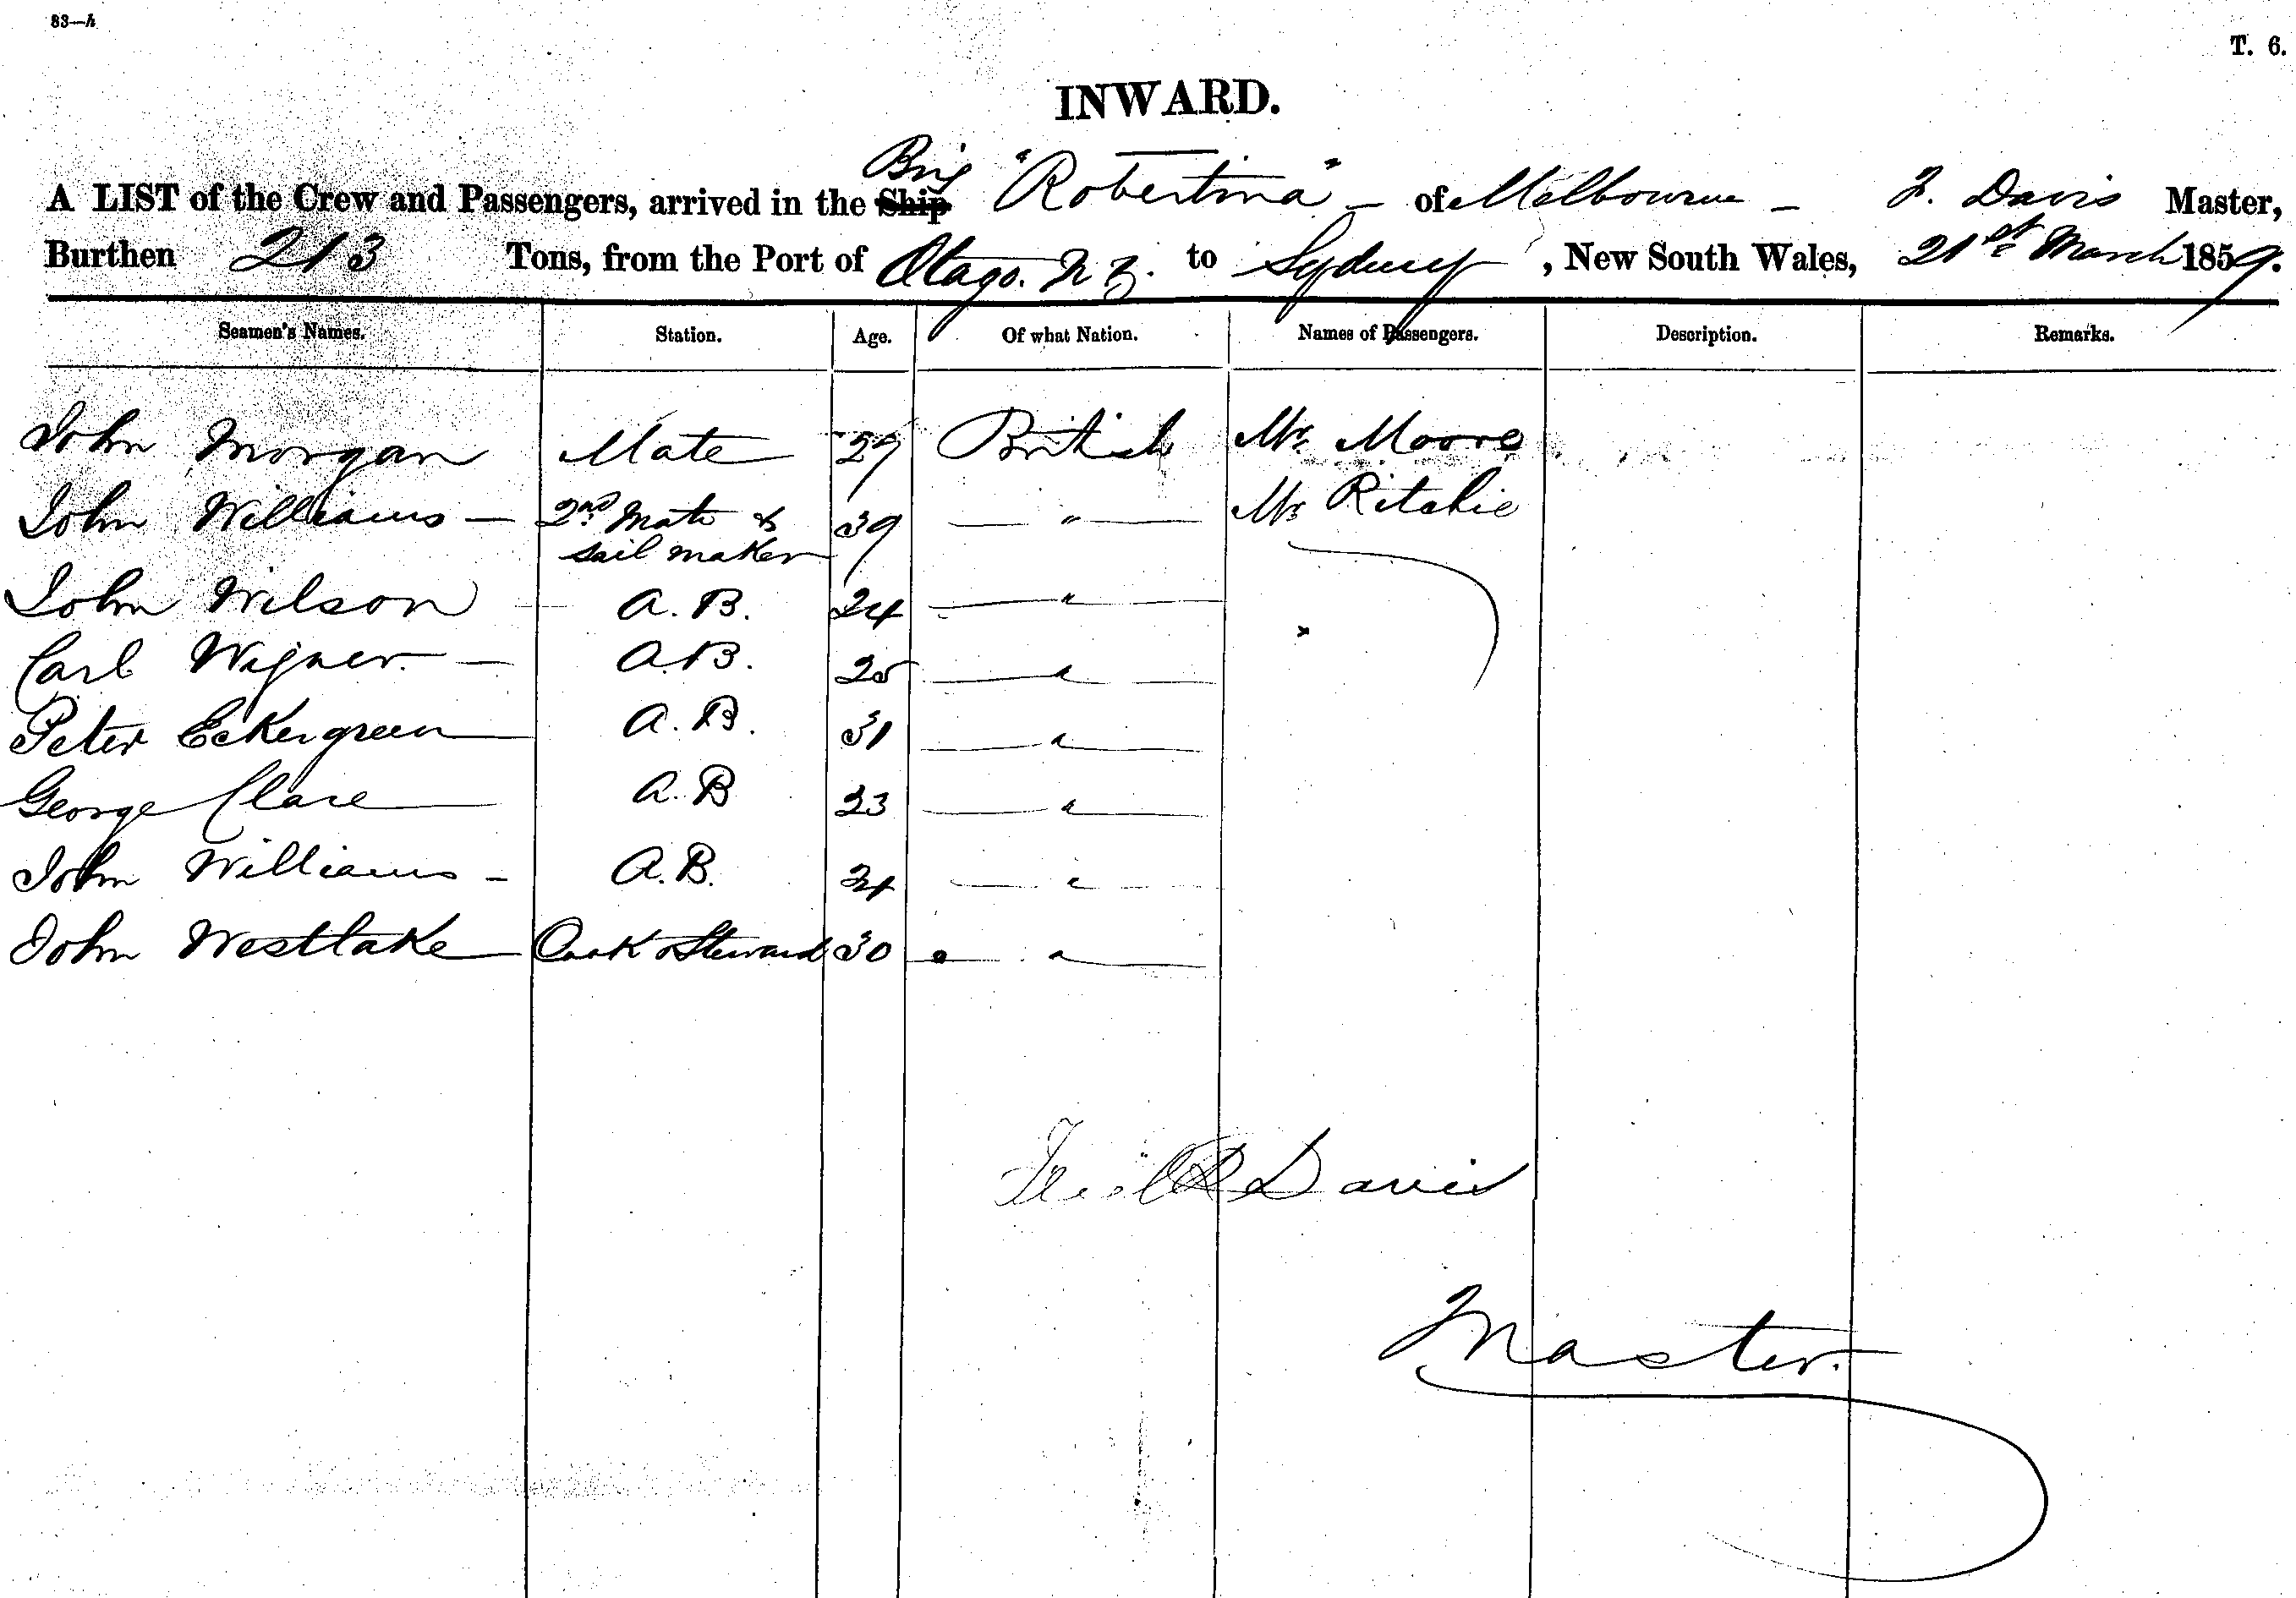 83—h
T. 6.
INWARD.
A LIST of the Crew and Passengers, arrived in the Ship Brig "Robertina" - of Melbourne - F. Davis Master,
Burthen 213 Tons, from the Port of Otago. N Z. to Sydney, New South Wales, 21st March 1859.
Seamen's Names. Station. Age. Of what Nation. Names of Passengers. Description. Remarks.
John Morgan Mate 27 British Mr. Moore
John Williams - 2nd Mate & sail maker 39 — " — Mr Ritchie
John Wilson A. B. 24 — " —
Carl Wigner. - A.B. 25 — " —
Peter Eckergreen A. B. 31 — " —
George Clare A. B 23 — " —
John Williams - A. B. 24 — " —
John Westlake Cook & Steward 30 — " —
Davis
Master.